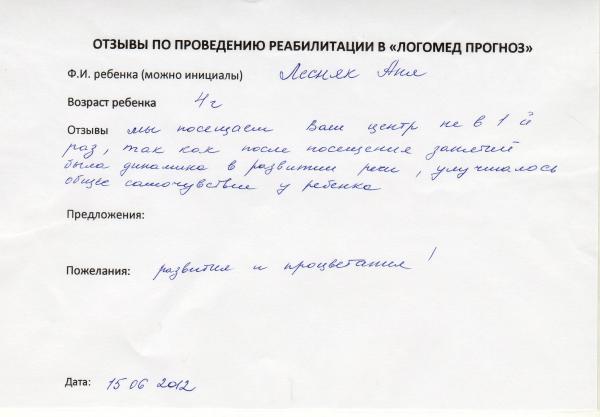 ОТЗЫВЫ ПО ПРОВЕДЕНИЮ РЕАБИЛИТАЦИИ В «ЛОГОМЕД ПРОГНОЗ»
Ф.И. ребенка (можно инициалы) Лесняк Аня
Возраст ребенка 4 г
Отзывы мы посещаем Ваш центр не в 1 й
раз, так как после посещения занятий
была динамика в развитии речи, улучшалось
общее самочувствие у ребенка
Предложения:
Пожелания: развития и процветания!
Дата: 15 06 2012